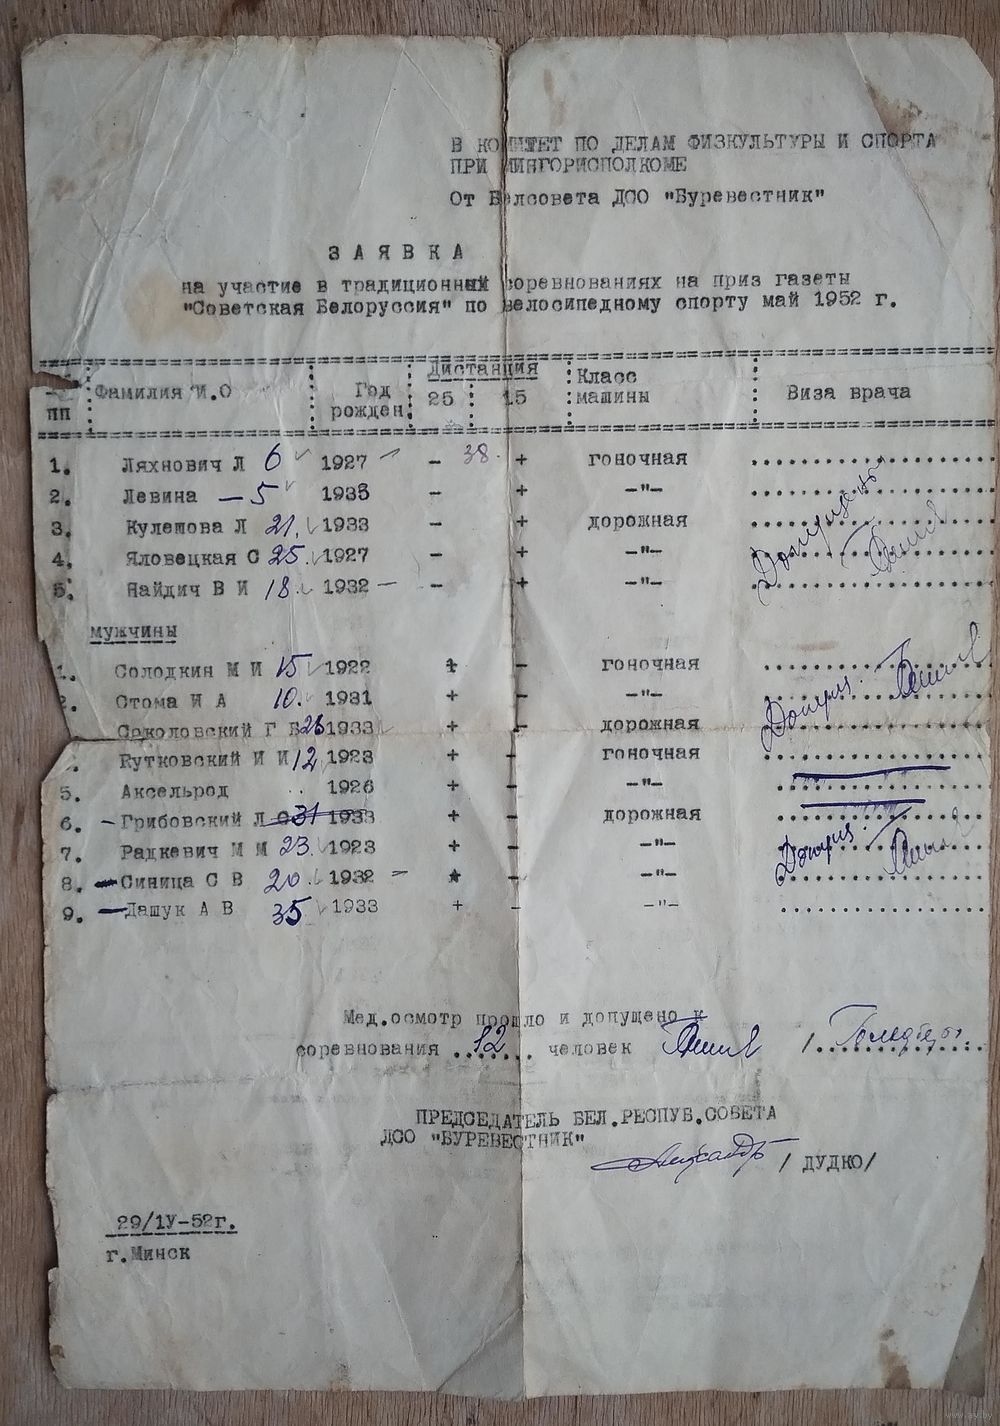 В КОМИТЕТ ПО ДЕЛАМ ФИЗКУЛЬТУРЫ И СПОРТА
ПРИ МИНГОРИСПОЛКОМЕ
От Белсовета ДСО "Буревестник"
З А Я В К А
на участие в традиционный соревнованиях на приз газеты
"Советская Белоруссия" по велосипедному спорту май 1952 г.
пп Фамилия И.О Год рожден. Дистанция 25 15 Класс машины Виза врача
1. Ляхнович Л 6 1927 - 38. + гоночная
2. Левина - 5 1935 - + -"-
3. Кулешова Л 21. 1933 - + дорожная
4. Яловецкая С 25. 1927 - + -"-
5. Найдич В И 18. 1932 - + -"-
мужчины
1. Солодкин М И 15 1922 + - гоночная
2. Стома И А 10. 1931 + - -"-
Соколовский Г Б 28 1933 + - дорожная
Рутковский И И 12 1923 + - гоночная
5. Аксельрод 1926 + - -"-
6. - Грибовский Л С 31 1933 + - дорожная
7. Радкевич М М 23. 1923 + - -"-
8. - Синица С В 20. 1932 + - -"-
9. - Дашук А В 35 1933 + - -"-
Мед.осмотр прошло и допущено к
соревнования 12 человек /
ПРЕДСЕДАТЕЛЬ БЕЛ.РЕСПУБ.СОВЕТА
ДСО "БУРЕВЕСТНИК"
/ ДУДКО/
29/1У-52г.
г.Минск